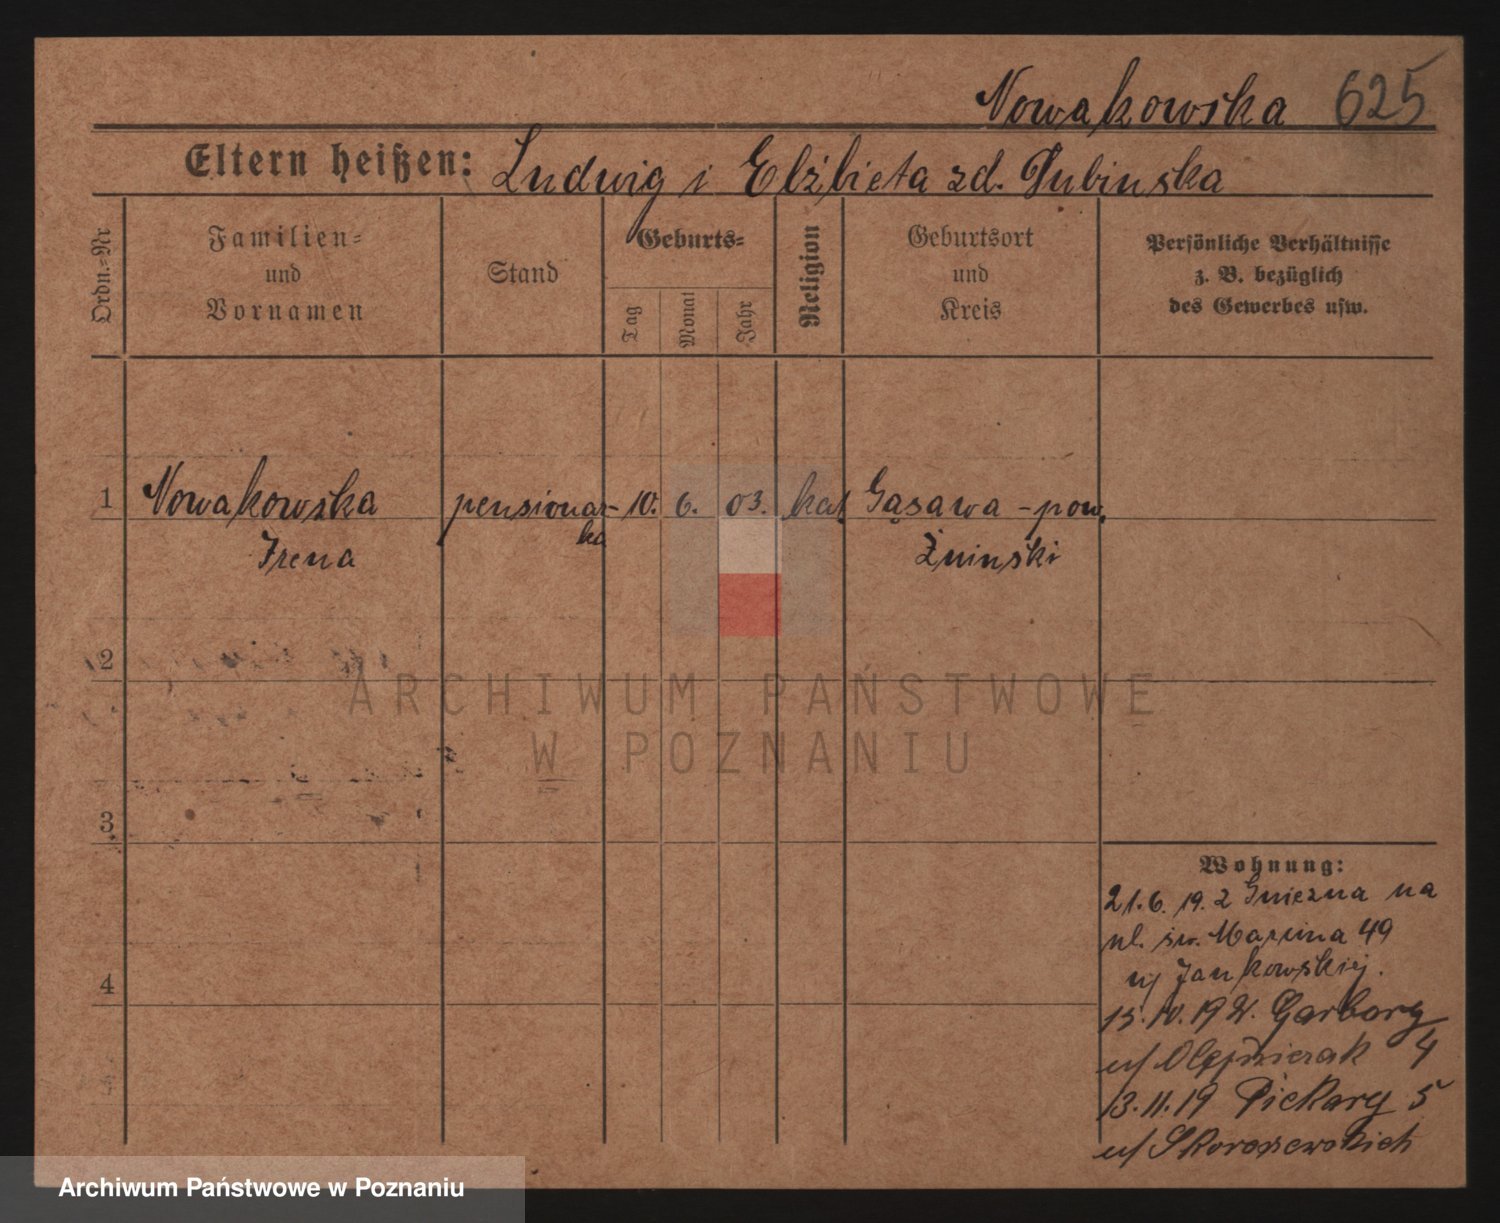 Nowakowska 625
Eltern heißen: Ludwig i Elżbieta zd. Dubinska
Ordn.=Nr
Familien=
und
Vornamen
Stand
Geburts=
Tag
Monat
Jahr
Religion
Geburtsort
und
Kreis
Persönliche Verhältnisse
z. B. bezüglich
des Gewerbes usw.
1 Nowakowska pensionar- 10. 6. 03. kat. Gąsawa - pow.
Irena ka Żninski
2
3
4
Wohnung:
21.6.19. z Gniezna na
ul. św. Marcina 49
Jankowskiej.
15.10.19 Garbary
4
13.11.19 Piekary 5
ARCHIWUM PAŃSTWOWE
W POZNANIU
Archiwum Państwowe w Poznaniu